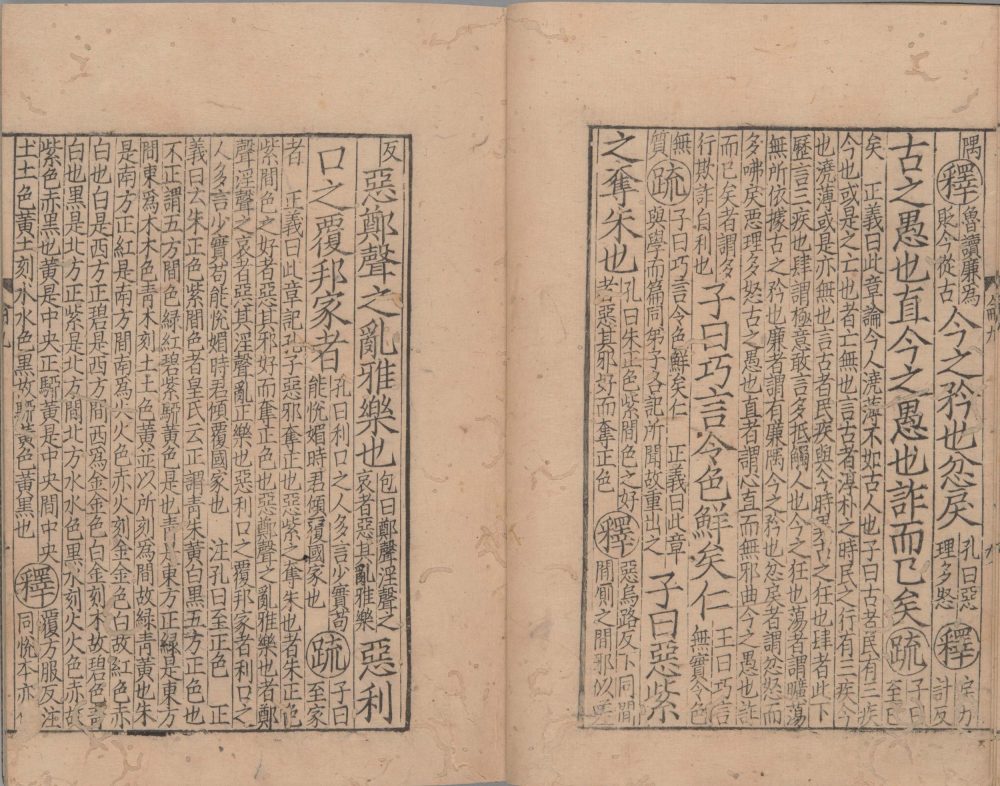 隅釋魯讀廉為
貶今從古
今之矜也忿戾
孔曰惡
理多怒
釋
力
計反
古之愚也直今之愚也詐而已矣
疏
子曰
至已
矣 正義曰此章論今人澆薄不如古人也子曰古者民有三疾
今也或是之亡也者亡無也言古者淳朴之時民之行有三疾今
也澆薄或是亦無也言古者民疾與今時異古之狂也肆者此下
歷言三疾也肆謂極意敢言多抵觸人也今之狂也蕩者謂曠蕩
無所依據古之矜也廉者謂有廉隅今之矜也忿戾者謂忿怒而
多咈戾惡理多怒古之愚也直者謂心直而無邪曲今之愚也詐
而已矣者謂多
行欺詐自利也
子曰巧言令色鮮矣仁
王曰巧言
無實令色
無
質
疏
子曰巧言令色鮮矣仁 正義曰此章
與學而篇同弟子各記所聞故重出之
子曰惡紫
之奪朱也
孔曰朱正色紫間色之好
者惡其邪好而奪正色
釋
惡烏路反下同間
間廁之間邪似嗟
反
惡鄭聲之亂雅樂也
包曰鄭聲淫聲之
哀者惡其亂雅樂
惡利
口之覆邦家者
孔曰利口之人多言少實苟
能悅媚時君傾覆國家也
疏
子曰
至家
者 正義曰此章記孔子惡邪奪正也惡紫之奪朱也者朱正色
紫間色之好者惡其邪好而奪正色也惡鄭聲之亂雅樂也者鄭
聲淫聲之哀者惡其淫聲亂正樂也惡利口之覆邦家者利口之
人多言少實苟能悅媚時君傾覆國家也 注孔曰至正色 正
義曰云朱正色紫間色者皇氏云正謂青朱黃白黑五方正色也
不正謂五方間色綠紅碧紫騮黃色是也青是東方正綠是東方
間東為木木色青木刻土土色黃並以所刻為間故綠青黃也朱
是南方正紅是南方間南為火火色赤火刻金金色白故紅色赤
白也白是西方正碧是西方間西為金金色白金刻木故碧色青
白也黑是北方正紫是北方間北方水水色黑水刻火火色赤故
紫色赤黑也黃是中央正騮黃是中央間中央
土土色黃土刻水水色黑故騮黃色黃黑也
釋
覆方服反注
同悅本亦